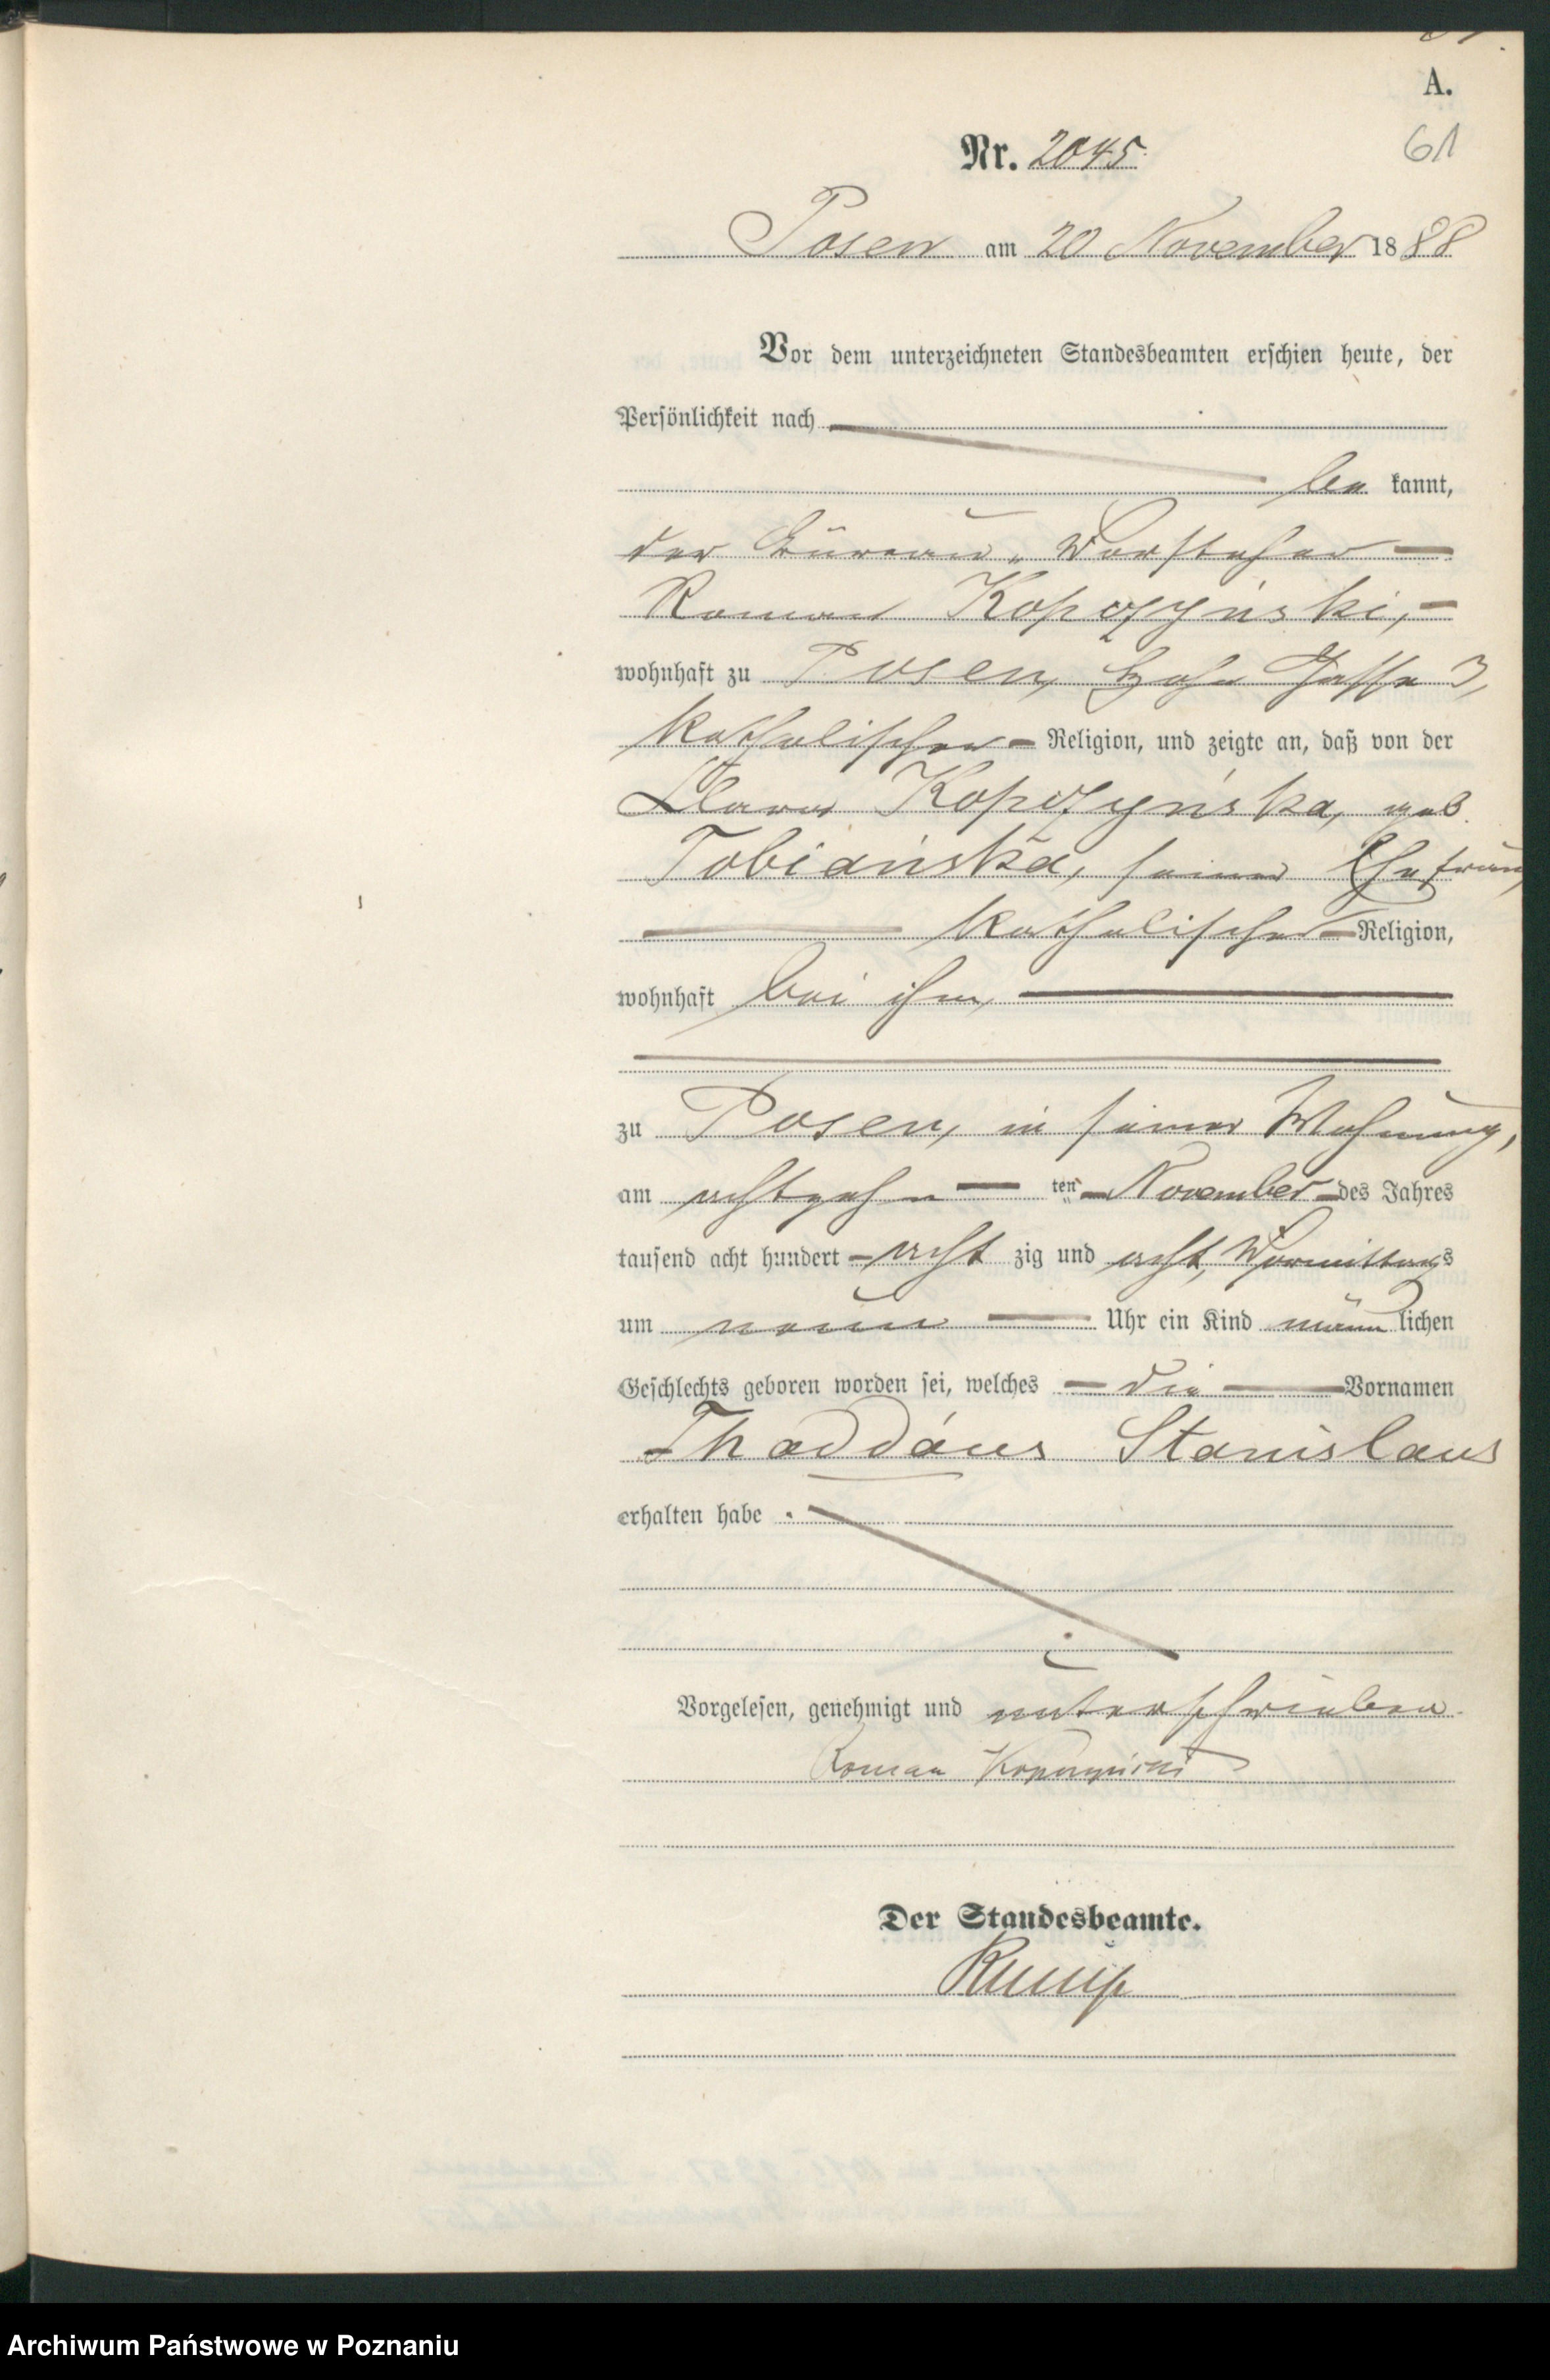 A.
61
Nr. 2045.
Posen am 20 November 1888
Vor dem unterzeichneten Standesbeamten erschien heute, der
Persönlichkeit nach
be kannt,
der Büreau-Vorsteher
Roman Kopczyński,
wohnhaft zu Posen, Hohe Gasse 3,
katholischer Religion, und zeigte an, daß von der
Clara Kopczyńska, geb.
Tobiańska, seiner Ehefrau,
katholischer Religion,
wohnhaft bei ihm,
zu Posen, in seiner Wohnung,
am achtzehn ten November des Jahres
tausend acht hundert acht zig und acht, Vormittags
um neun Uhr ein Kind männ lichen
Geschlechts geboren worden sei, welches die Vornamen
Thaddäus Stanislaus
erhalten habe.
Vorgelesen, genehmigt und unterschrieben.
Roman Kopczyński
Der Standesbeamte.
Archiwum Państwowe w Poznaniu